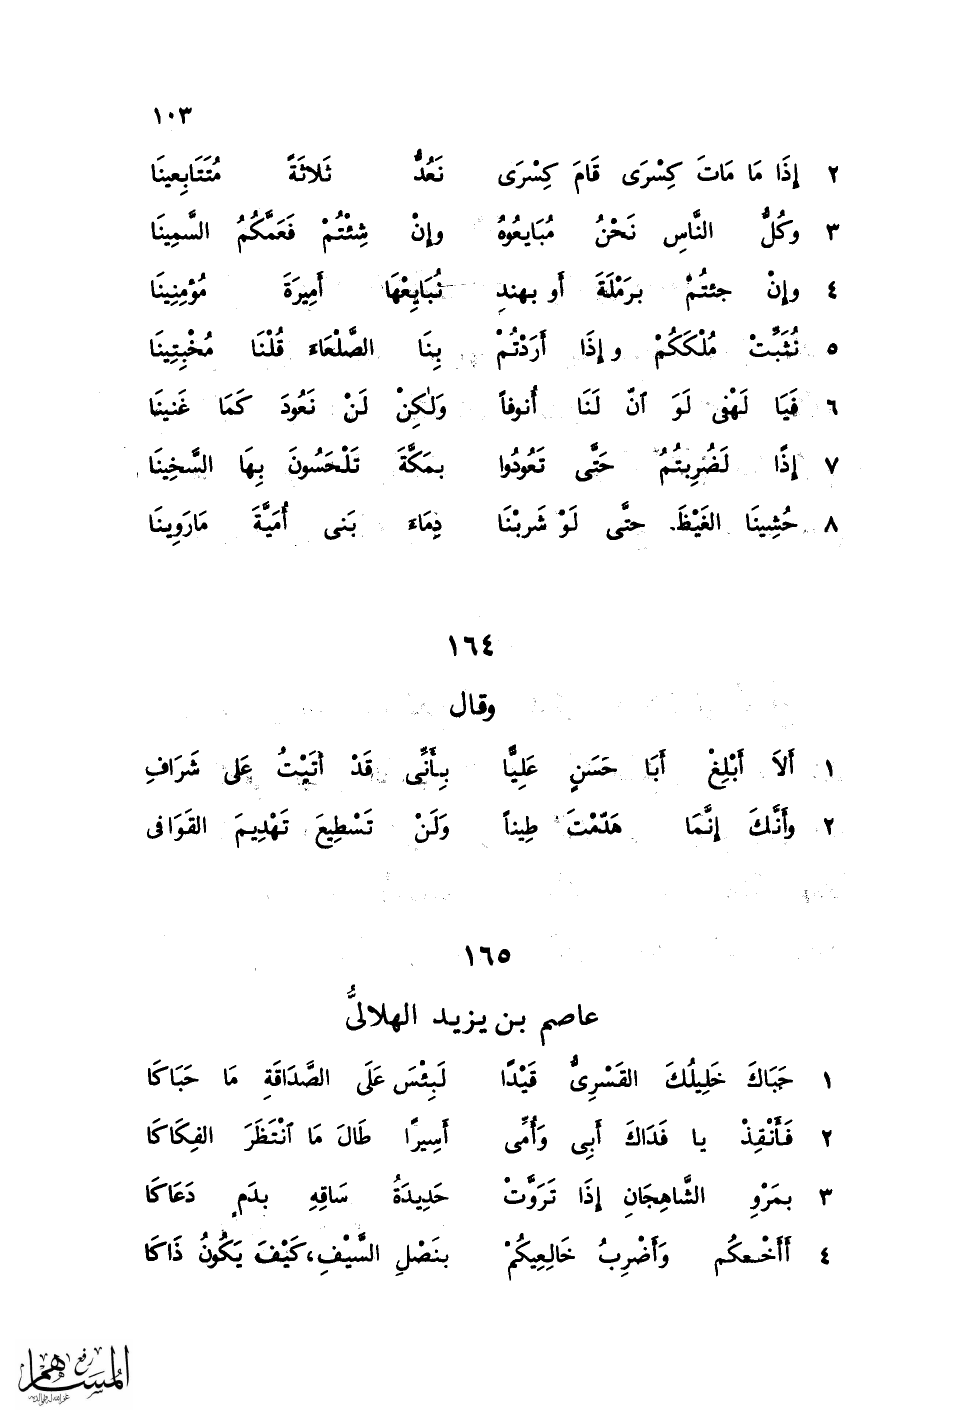 ١٠٣
٢ إِذَا مَا مَاتَ كِسْرَى قَامَ كِسْرَى نَعُدُّ ثَلاثَةً مُتَتَابِعينَا
٣ وكُلُّ النَّاسِ نَحْنُ مُبَايعُوهُ وإِنْ شِئْتُمْ فَعَمَّكُمُ السَّمِينَا
٤ وإِنْ جئتُمْ برَمْلَةَ أَو بهندِ نُبَايِعْهَا أَمِيرَةَ مُؤمِنِينَا
٥ نُثَبِّتْ مُلْكَكُمْ وإِذَا أَرَدْتُمْ بِنَا الصَّلْعَاءَ قُلْنَا مُخْبِتِينَا
٦ فَيَا لَهْفِى لَوَ ٱنّ لَنَا أُنوفاً وَلٰكِنْ لَنْ نَعُودَ كَمَا غَنينَا
٧ إِذًا لَضُرِبتُمُ حَتَّى تَعُودُوا بمَكَّةَ تَلْحَسُونَ بِهَا السَّخِينَا
٨ حُشِينَا الغَيْظَ حتَّى لَوْ شَربْنَا دِمَاءَ بَنى أُمَيَّةَ مَارَوِينَا
١٦٤
وقال
١ أَلاَ أَبْلِغْ أَبَا حَسَنٍ عَلِيًّا بِأَنِّى قَدْ أَتَيْتُ عَلى شَرَافِ
٢ وأَنَّكَ إِنَّمَا هَدّمْتَ طِيناً وَلَنْ تَسْطِيعَ تَهْدِيمَ القَوَافى
١٦٥
عاصم بن يزيد الهلالىُّ
١ حَبَاكَ خَلِيلُكَ القَسْرِىُّ قَيْدًا لَبِئْسَ عَلَى الصَّدَاقَةِ مَا حَبَاكَا
٢ فَأَنْقِذْ يا فَدَاكَ أَبِى وَأُمِّى أَسِيرًا طَالَ مَا ٱنْتَظَرَ الفِكَاكَا
٣ بمَرْوِ الشَّاهِجَانِ إِذَا تَرَوَّتْ حَدِيدَةُ سَاقِهِ بدَمٍ دَعَاكَا
٤ أَأَخْـعكُم وَأَضْرِبُ خَالِعِيكُمْ بنَصْلِ السَّيْفِ، كَيْفَ يَكُونُ ذَاكَا